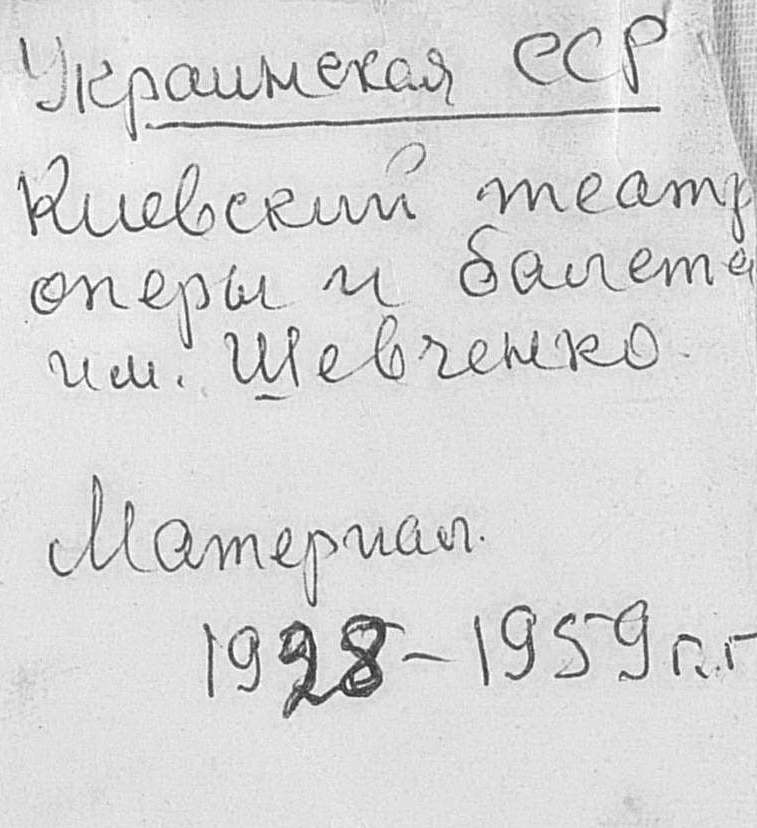 Украинская ССР
Киевский театр
оперы и балета
им. Шевченко.
Материал.
1928-1959 г.г